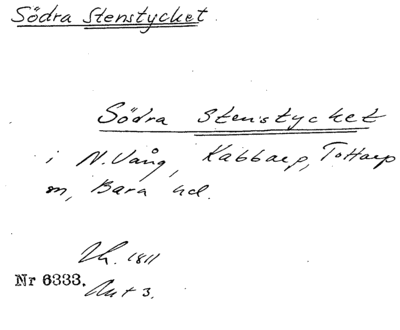 Södra Stenstycket.
Södra Stenstycket
i N. Vång, Kabbarp, Tottarp
sn, Bara hd.
Lh. 1811
Nr 6333. Akt 3.